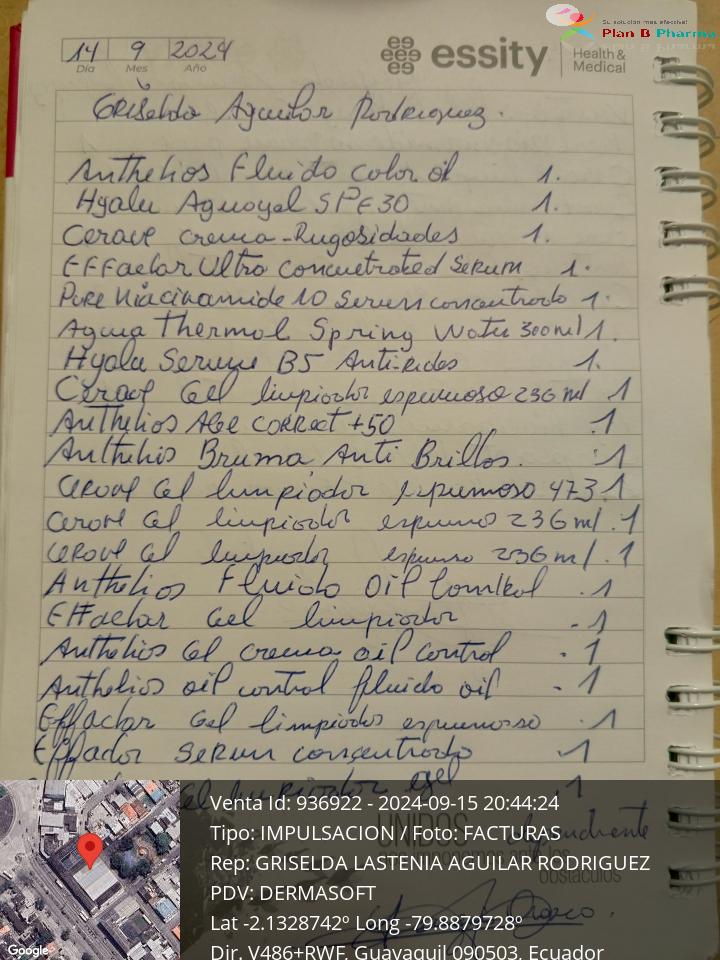 Su solución más efectiva!
Plan B Pharma
14 9 2024
Día Mes Año
essity Health & Medical
Griselda Aguilar Rodriguez.
Anthelios Fluido color oil 1.
Hyalu Aguagel SPF 30 1.
Cerave crema - Rugosidades 1.
Effaclar Ultra Concentrated Serum 1.
Pure Niacinamide 10 Serum concentrado 1.
Agua Thermal Spring Water 300ml 1.
Hyalu Serum B5 Anti-rides 1.
Cerave Gel limpiador espumoso 236 ml 1
Anthelios Age correct +50 .1
Anthelios Bruma Anti Brillos. 1
Cerave Gel limpiador espumoso 473.1
Cerave Gel limpiador espumoso 236 ml .1
Cerave Gel limpiador espumoso 236 ml .1
Anthelios Fluido Oil Control .1
Effaclar Gel limpiador .1
Anthelios Gel crema oil control .1
Anthelios oil control fluido oil .1
Effaclar Gel limpiador espumoso .1
Effaclar Serum concentrado .1
Gel limpiador .1
UNIDOS
obstáculos
Venta Id: 936922 - 2024-09-15 20:44:24
Tipo: IMPULSACION / Foto: FACTURAS
Rep: GRISELDA LASTENIA AGUILAR RODRIGUEZ
PDV: DERMASOFT
Lat -2.1328742º Long -79.8879728º
Dir. V486+RWF, Guayaquil 090503, Ecuador
Google